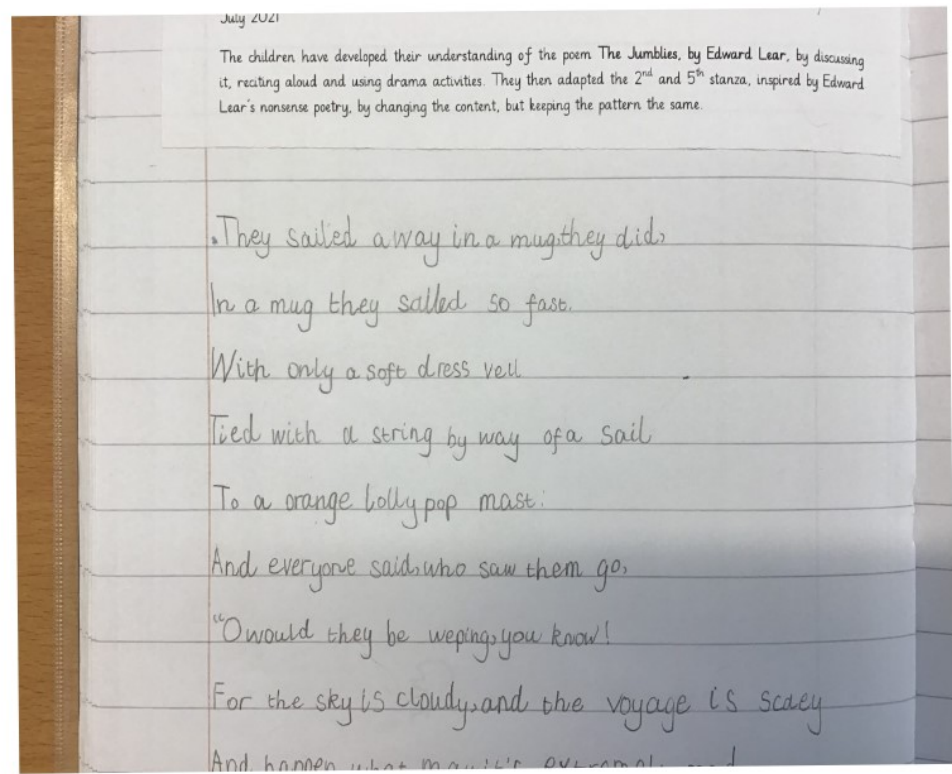 July 2021
The children have developed their understanding of the poem The Jumblies, by Edward Lear, by discussing
it, reciting aloud and using drama activities. They then adapted the 2nd and 5th stanza, inspired by Edward
Lear's nonsense poetry, by changing the content, but keeping the pattern the same.
They sailed away in a mug, they did,
In a mug they sailed so fast.
With only a soft dress veil
Tied with a string by way of a sail
To a orange lolly pop mast:
And everyone said, who saw them go,
"O would they be weping, you know!
For the sky is cloudy, and the voyage is scaey
And happen what may it's